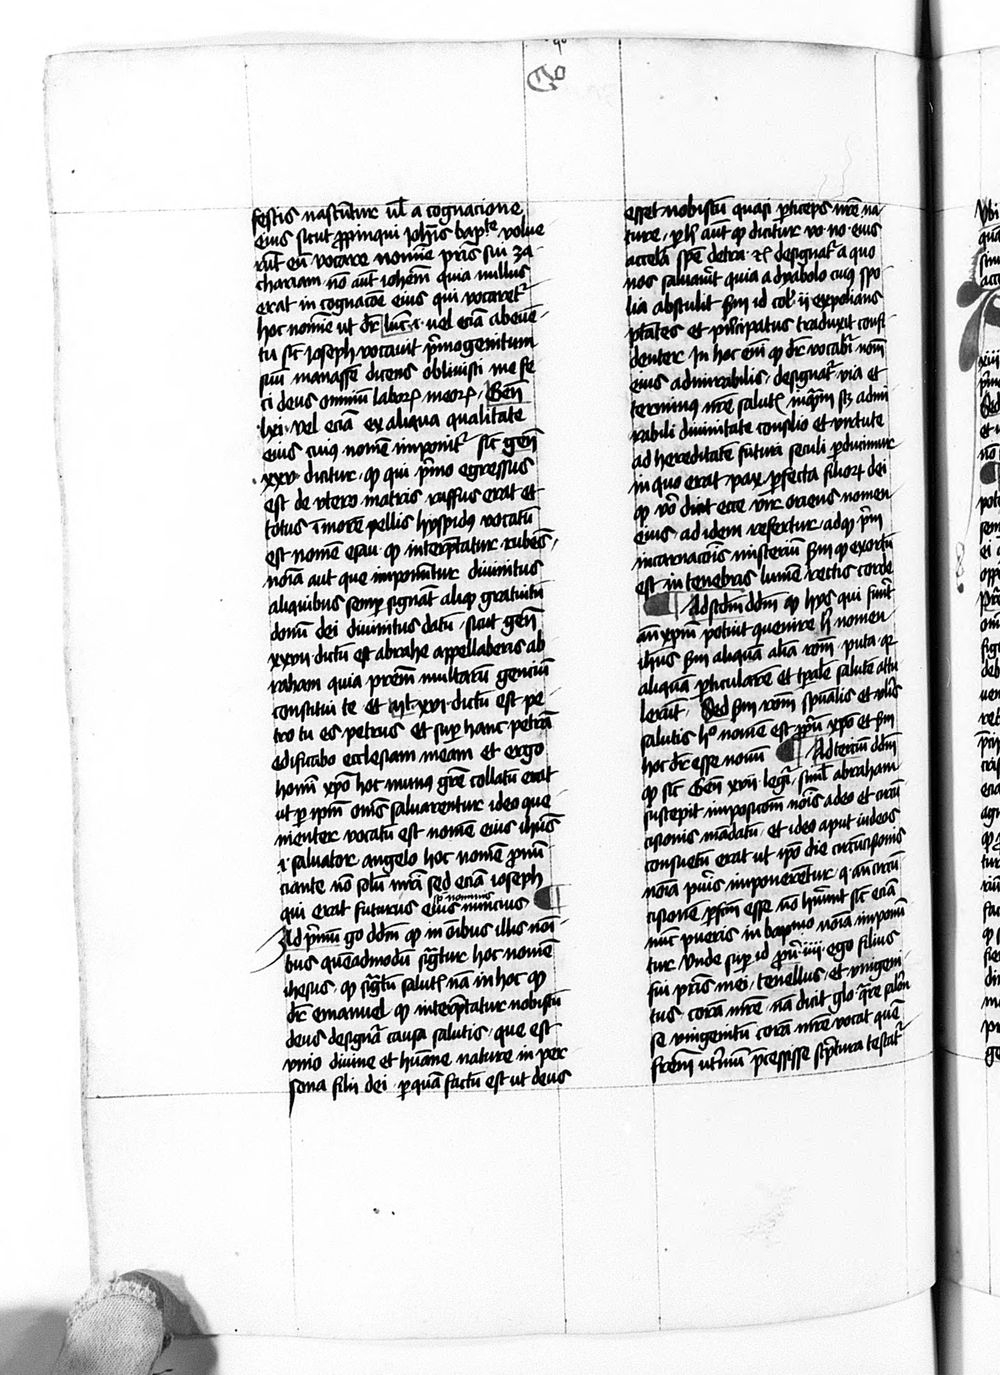 festis nascu̅tur ul̅ a cognacione
eius sicut p̅pinqui ioh̅is bapte̅ volue
ru̅t eu̅ vocare nomi̅e pr̅is sui za
chariam no̅ aut̅ ioh̅em quia nullus
erat in cognac̅oe eius qui vocaret̅
hoc nomi̅e ut dr̅ luc̅ .i. uel ecia̅ ab eue̅
tu sic̅ ioseph vocauit p̅mogenitum
suu̅ manasse̅ dicens obliuisci me fe
ci deus omniu̅ laborꝝ meorꝝ . Gen̅
.lxi. vel ecia̅ ex aliqua qualitate
eius cuiꝰ nome̅ imponit̅ sic̅ gen̅
.xxv. dicitur . ꝙ qui p̅mo egressus
est de vtero matris ruffus erat et
totus i̅ more̅ pellis hyspidꝰ vocatu̅
est nome̅ esau ꝙ interp̅tatur rubeus̅
no̅ia aut que imponu̅tur diuinitus
aliquibus semp̅ signa̅t aliqͦ gratuitu̅
donu̅ dei diuinitus datu̅ . sicut gen̅
xxvii . dictu̅ est abrahe appellaberis ab
raham quia pr̅em multaru̅ genciu̅
constitui te et mt̅ . xvi . dictu̅ est pe
tro tu es petrus et sup̅ hanc petra̅
edificabo ecclesiam meam et ergo
homi̅ xp̅o hoc munꝰ gr̅e collatu̅ erat
ut p̅ ip̅m om̅s saluarentur ideo que
nienter vocatu̅ est nome̅ eius ih̅us
.i. saluator angelo hoc nome̅ p̅nu̅
ciante no̅ solu̅ mr̅i sed ecia̅ ioseph
qui erat futurus eius nuncius
Ad p̅mu̅ go dd̅m ꝙ in o̅ibus illis no̅i
bus que̅admodu̅ sig̅tur hoc nome̅
ihesus . ꝙ sig̅tu̅ salutꝭ na̅ in hoc ꝙ
dr̅ emanuel ꝙ interp̅tatur nobiscu̅
deus designat̅ causa salutis . que est
vnio diuine et hu̅ane nature in per
sona filii dei . p̅ qua̅ factu̅ est ut deus
esset nobiscu̅ quasi p̅ticeps nr̅e na
ture . p̅ h̅ aut̅ ꝙ dicitur vo . no . eius
accela̅ spe̅ detra . ꝛc̅ designat̅ a quo
nos saluauit̅ quia a dyabolo cuiꝰ spo
lia abstulit sm̅ id col̅ . ii expolians
p̅tates et p̅ncipatus traduxit co̅fi
denter In hoc em̅ ꝙ dr̅ vocabit̅ nom̅
eius admirabilis . designat̅ via et
terminꝰ nr̅e salutꝭ inqua̅m s̅ꝫ admi
rabili diuinitate consilio et virtute
ad hereditate̅ futuri seculi p̅ducimur
in quo erat pax p̅fecta filioꝝ dei
ꝙ vo̅ dicit ecce vir oriens nomen
eius . ad idem refertur . ad qͦ p̅m̅
incarnac̅ois misteriu̅ sm̅ ꝙ exortu̅
est in tenebris lume̅ rectis corde
Ad scd̅m dd̅m ꝙ hys qui fuer̅t
an̅ xp̅m potuit quenire h̅ nomen
ih̅us sm̅ aliqua̅ alia ro̅m . puta . qꝛ
aliqua̅ p̅ticulare̅ et tp̅ale̅ salute̅ attu
leru̅t . Sed sm̅ ro̅m sp̅ualis et vl̅is
salutis h̅ nome̅ est p̅pu̅ xp̅o et sm̅
hoc dr̅ esse nouu̅ Ad terciu̅ dd̅m
ꝙ sic̅ Gen̅ xvii legit̅ . simul̅ abraham
suscepit imposic̅om no̅is a deo et circu̅
cisionis ma̅datu̅ . et ideo aput iudeos
consuetu̅ erat ut ip̅o die circu̅cisionis
no̅ia pu̅is imponere̅tur . q̅ an̅ circu̅
cisione̅ p̅fc̅m esse no̅ h̅uerint sic̅ ecia̅
nu̅c pueris in baptis̅o no̅ia impon̅u̅
tur vnde sup̅ id p̅u̅ . iiii . ego filius
fui pr̅is mei . tenellus . et vnigeni
tus cora̅ mr̅e . na̅ dicit glo . q̅re salo̅
se vnigenitu̅ cora̅ mr̅e vocat que̅
fr̅em ut̅inu̅ p̅cessisse sc̅ptura testat̅